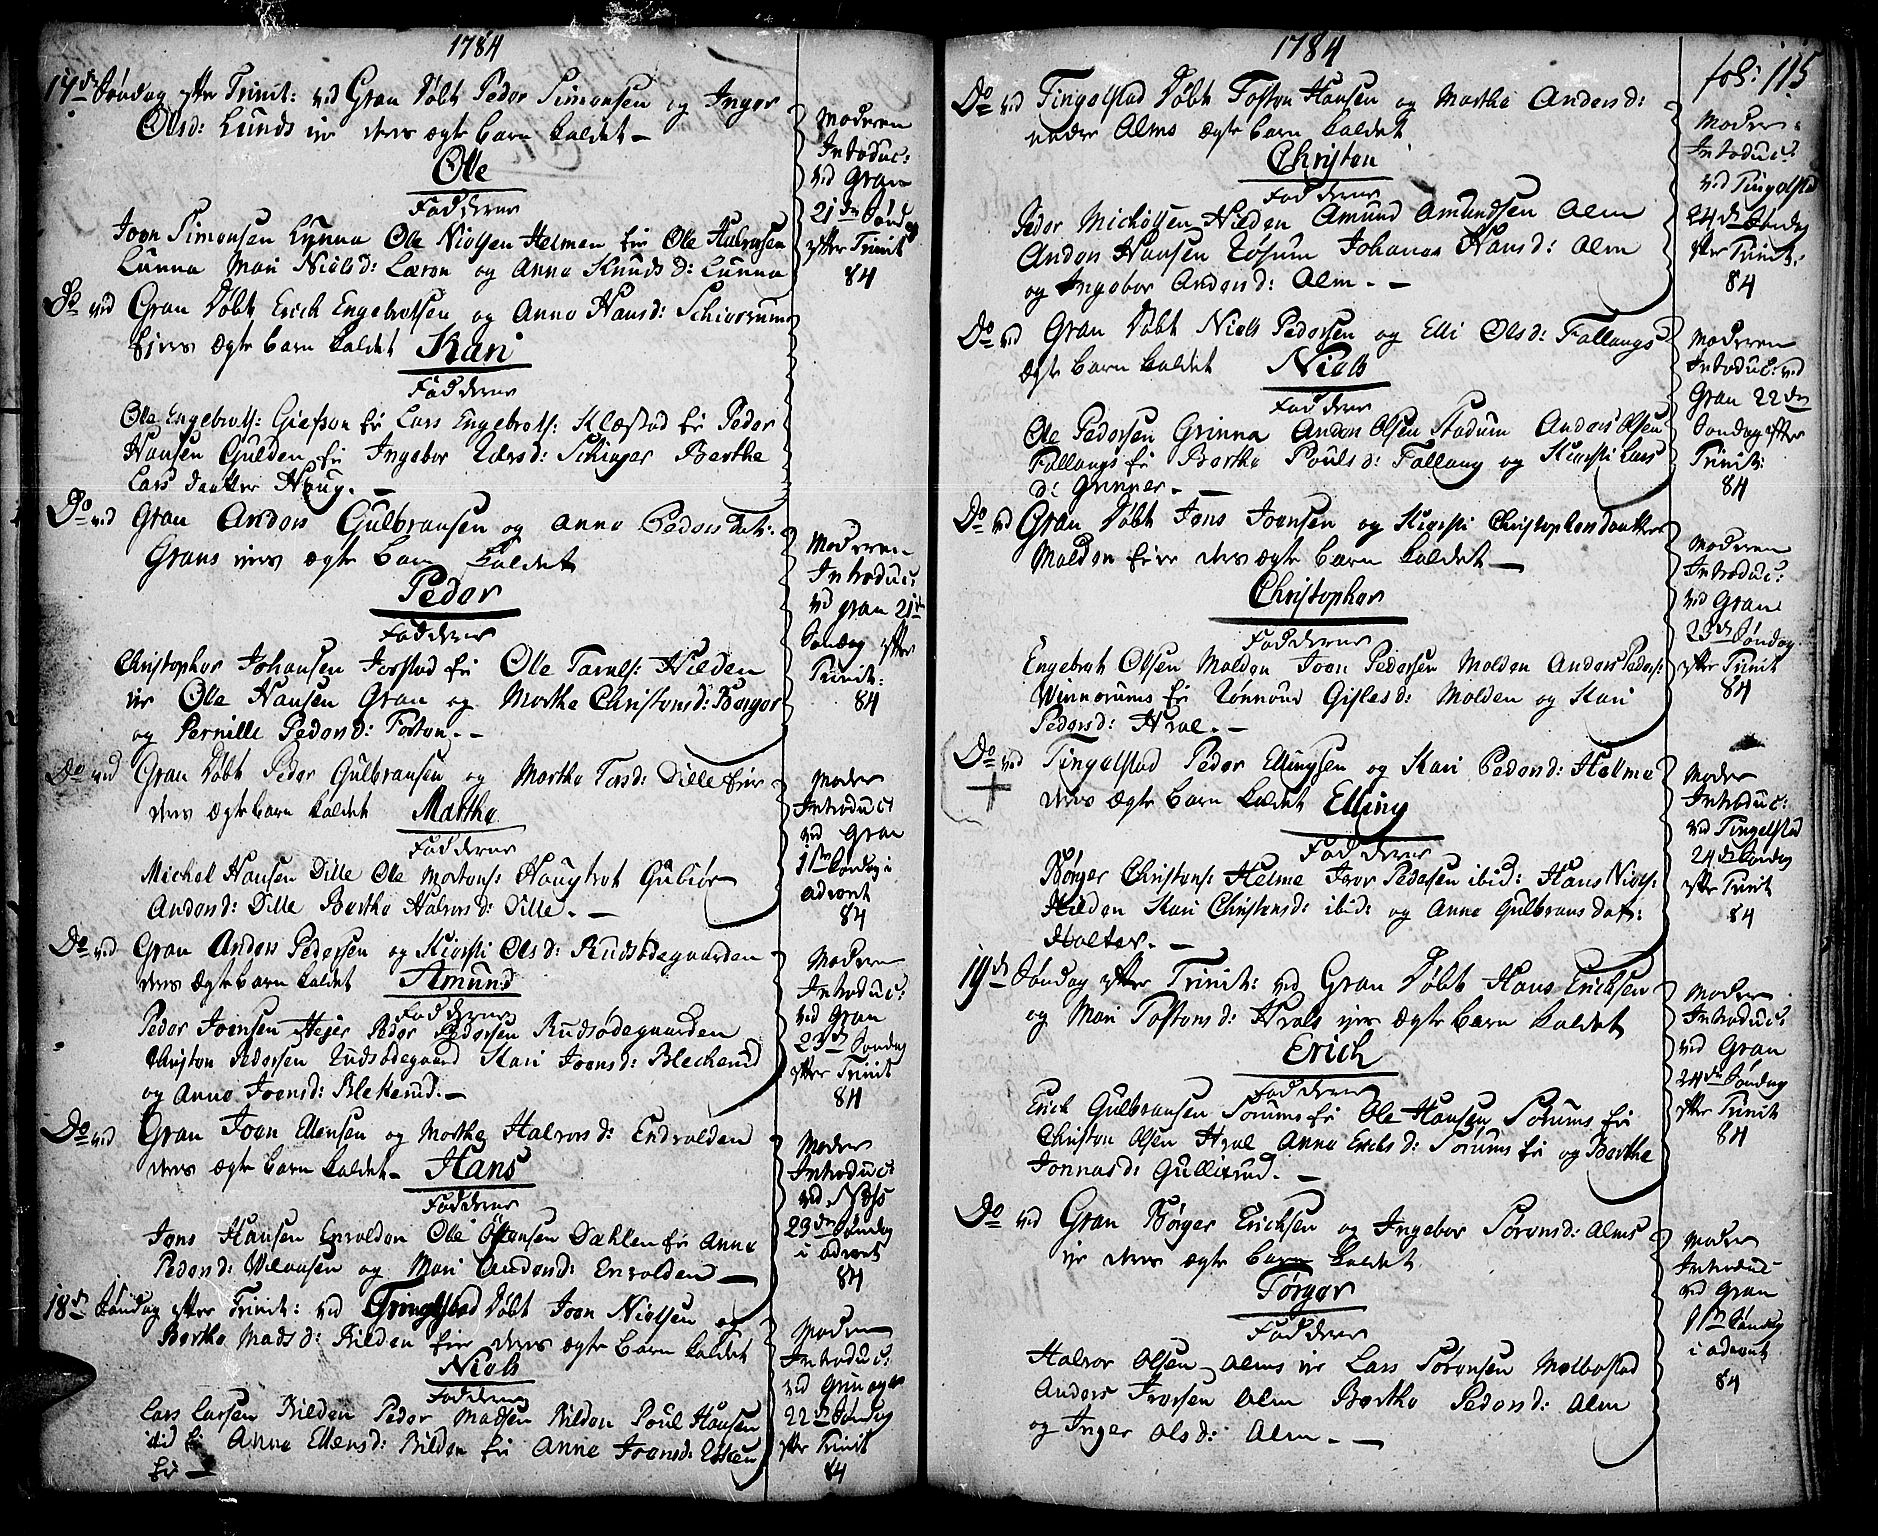 1784
17de Søndag efter Trinit: ved Gran Døbt Peder Simonsen og Inger
Olsd: Lunds eie deres ægte barn kaldet
Ole
Fadderne
Joen Simonsen Lynna Ole Nielsen Helmen Eie Ole Halvorsen
Lunna Mari Nielsd: Læren og Anne Knudsd: Lunna
Moderen
Introduc:
ved Gran
21de Sønd
efter Trinit
84
Do ved Gran Døbt Erich Engebretsen og Anne Hansd: Schiervum
Eiers ægte barn kaldet Kari
Fadderne
Ole Engebrets: Giefsen Eie Lars Engebrets: Klæstad Eie Peder
Hansen Gulden Eie Ingebor Lærsd: Schiager Berthe
Lars daatter Houg.
Do ved Gran Anders Gulbransen og Anne Peders Dat:
Grans eies ægte barn kaldet
Peder
Fadderne
Christopher Johansen Jorstad Eie Ole Tarals: Hilden
eie Ole Hansen Gran og Marthe Christensd: Berger
og Pernille Pedersd: Tosten.
Moderen
Introduc:
ved gran 21de
Søndag efter
Trinit:
84
Do ved Gran Døbt Peder Gulbransen og Marthe Torsd: Dille Eie
deres ægte barn kaldet Marthe
Fadderne
Michel Hansen Dille Ole Mortens: Hougtvet Gubiør
Andersd: Dille Berthe Halvorsd: Dille.
Moder
Introduc:
ved Gran
1ste Søndag i
advent
84
Do ved Gran Anders Pedersen og Kiersti Olsd: Rudsødegaarden
deres ægte barn kaldet Amund
Fadderne
Peder Joensen Hejer Peder Pedersen Rudsødegaarden
Christen Pedersen Rudsødegaard Kari Joensd: Bleckerud
og Anne Joensd: Blekerud.
Moderen
Introduc:
ved Gran
23de Søndag
efter Trinit
84
Do ved Gran Joen Ellensen og Marthe Halvorsd: Endvolden
deres ægte barn kaldet Hans
Fadderne
Jens Hansen Envolden Ole Ottersen Dæhlen Eie Anne
Pedersd: og Mari Andersd: Envolden
Moder
Introduc:
ved Næs
23de Søndag
i advent
84
18de Søndag efter Trinit: ved Tingelstad Døbt Joen Nielsen og
Berthe Madsd: Rilden Eie deres ægte barn kaldet
Niels
Fadderne
Lars Larsen Rilden Peder Madsen Rilden Poul Hansen
ibid Eie Anne Ellensd: Rilden Eie Anne Joensd:
Eie
Moderen
Introduc:
ved
22de Søndag
efter Trinit
84
1784
fol: 115
Do ved Tingelstad Døbt Tosten Hansen og Marthe Andersd:
nedre Alms ægte barn kaldet
Christen
Fadderne
Peder Michelsen Hilden Amund Amundsen Alm
Anders Hansen Røsum Johanes Hansd: Alm
og Ingebor Andersd: Alm.
Moder:
Introduc:
ved Tingelstad
24de Søndag
efter Trinit:
84
Do ved Gran Døbt Niels Pedersen og Elli Olsd: Fallangs
ægte barn kaldet Niels
Fadderne
Ole Pedersen Grinna Anders Olsen Stadum Anders Olsen
Fallangs Eie Berthe Poulsd: Fallang og Kiersti Lars
d: Grinner.
Moderen
Introduc: ved
Gran 22de
Søndag efter
Trinit:
84
Do ved Gran Døbt Jens Joensen og Kiersti Christophersdaatter
Molden Eie deres ægte barn kaldet
Christopher
Fadderne
Engebret Olsen Molden Joen Pedersen Molden Anders Peders:
Winnerums Eie Rønnoug Gislesd: Molden og Kari
Pedersd: Hval.
Moderen
Introduc:
ved Gran
23de Søndag
efter Trinit
84
Do ved Tingelstad Peder Ellingsen og Kari Pedersd: Helme
deres ægte barn kaldet Elling
Fadderne
Børger Christens: Helme Iver Pedersen ibid: Hans Niels:
Hilden Kari Christensd: ibid: og Anne Gulbrans dat:
Holter.
Moder
Introduc:
ved Tingelstad
24de Søndag
efter Trinit
84
19de Søndag efter Trinit: ved Gran Døbt Hans Erichsen
og Mari Tostensd: Hvals eies ægte barn kaldet
Erich
Fadderne
Erich Gulbransen Sorums Eie Ole Hansen Sorums Eie
Christen Olsen Hval Anne Erichsd: Sorums Eie og Berthe
Jonnasd: Gullerud.
Moder
Introduc:
ved Gran
24de Søndag
efter Trinit
84
Do ved Gran Børger Erichsen og Ingebor Sørensd: Alms
eie deres ægte barn kaldet
Torger
Fadderne
Halvor Olsen Alms eie Lars Sørensen Melbostad
Anders Iversen Alm Berthe Pedersd: Alm
og Inger Olsd: Alm.
Moder
Introduc
ved Gran
1ste Søndag
i advent
84